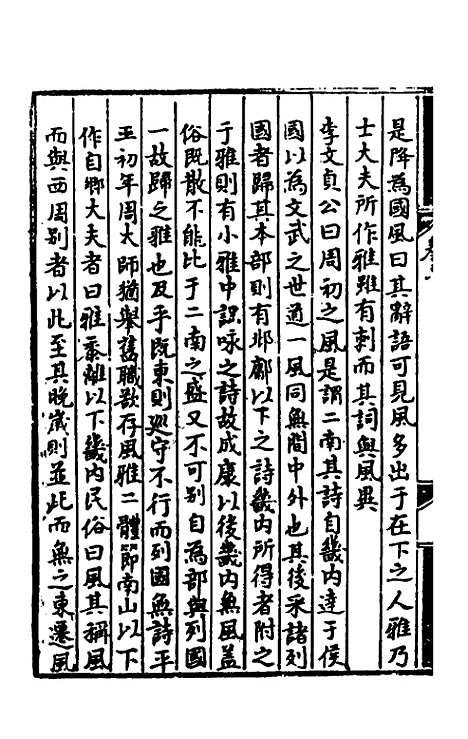 是降為國風曰其辭語可見風多出于在下之人雅乃
士大夫所作雅雖有刺而其詞與風異
李文貞公曰周初之風是謂二南其詩自畿内達于侯
國以為文武之世道一風同無間中外也其後采諸列
國者歸其本部則有邶鄘以下之詩畿内所得者附之
于雅則有小雅中諷咏之詩故成康以後畿内無風蓋
俗既散不能比于二南之盛又不可别自為部與列國
一故歸之雅也及乎既東則廵守不行而列國無詩平
王初年周大師猶舉舊職欲存風雅二體節南山以下
作自鄉大夫者曰雅黍離以下畿内民俗曰風其稱風
而與西周别者以此至其晚歲則並此而無之東遷風